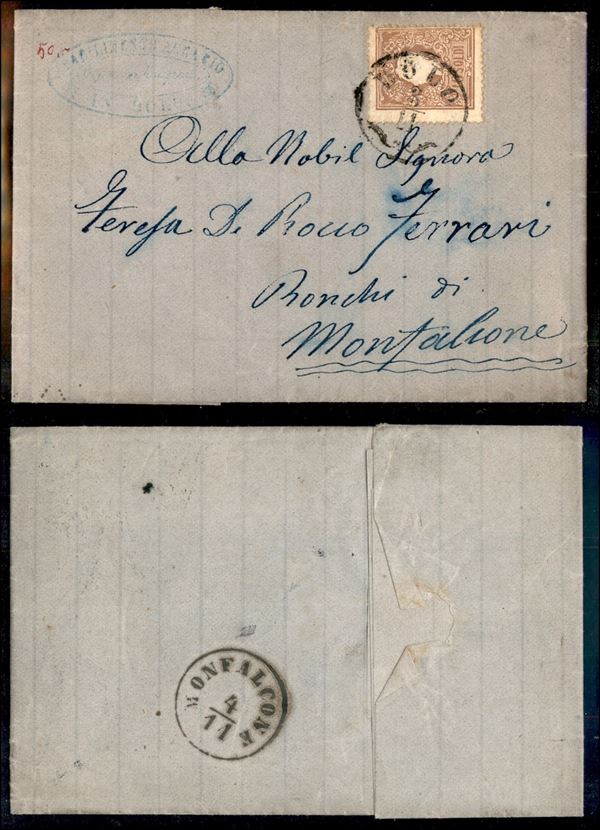 50,-
IN DOLO
DOLO
3
11
Alla Nobil Signora
Teresa De Rocco Ferrari
Ronchi di
Monfalcone
MONFALCONE
4
11